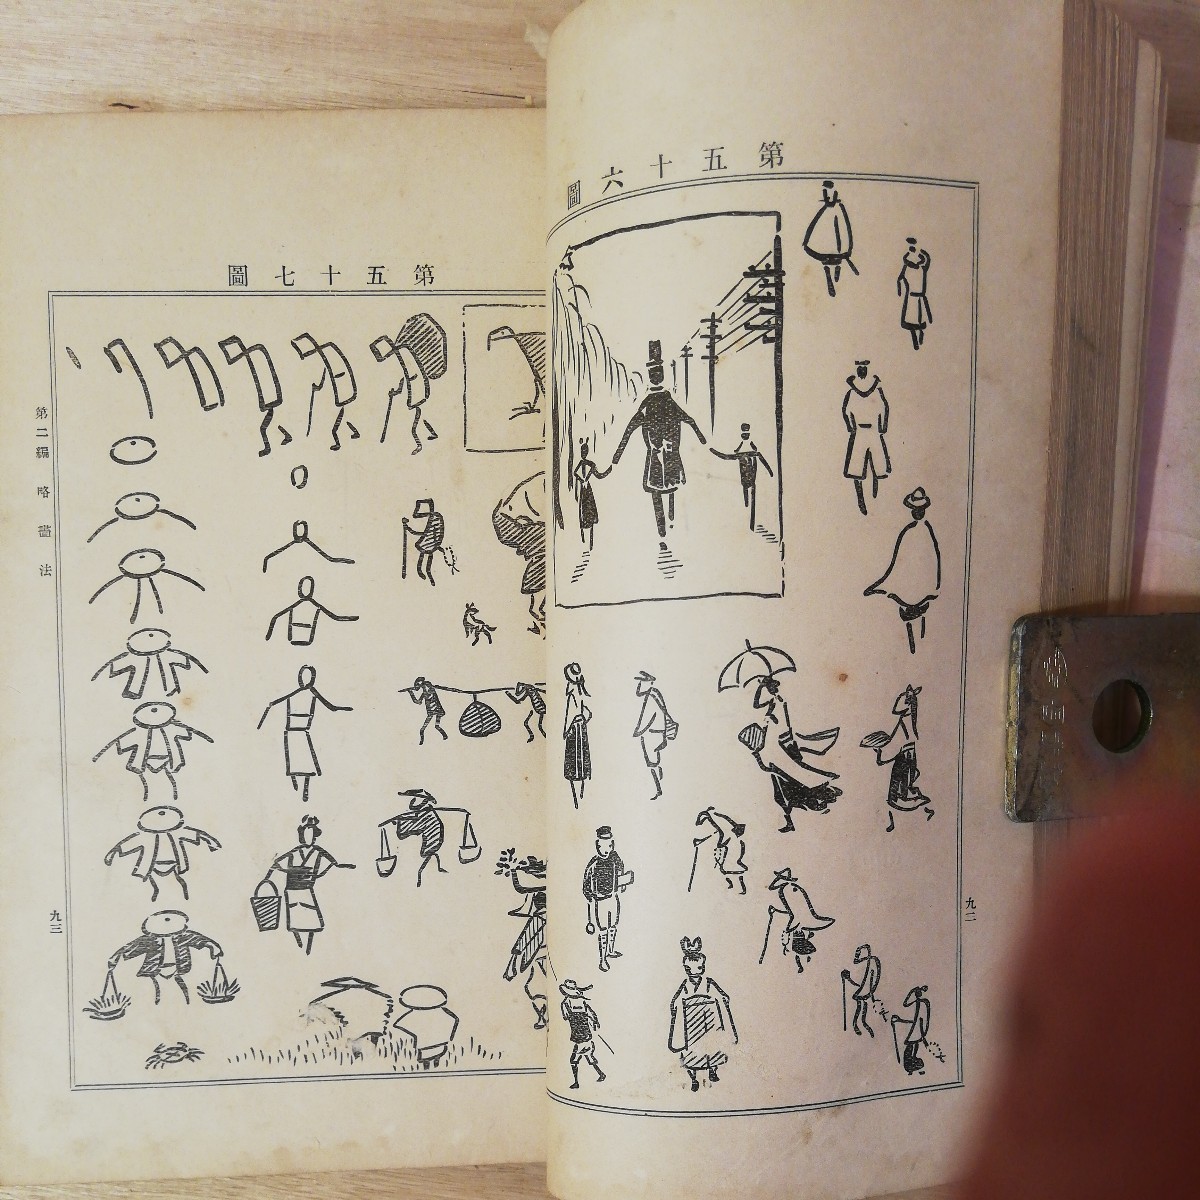 第五十六圖
九二
第五十七圖
第二編 略畫法
九三